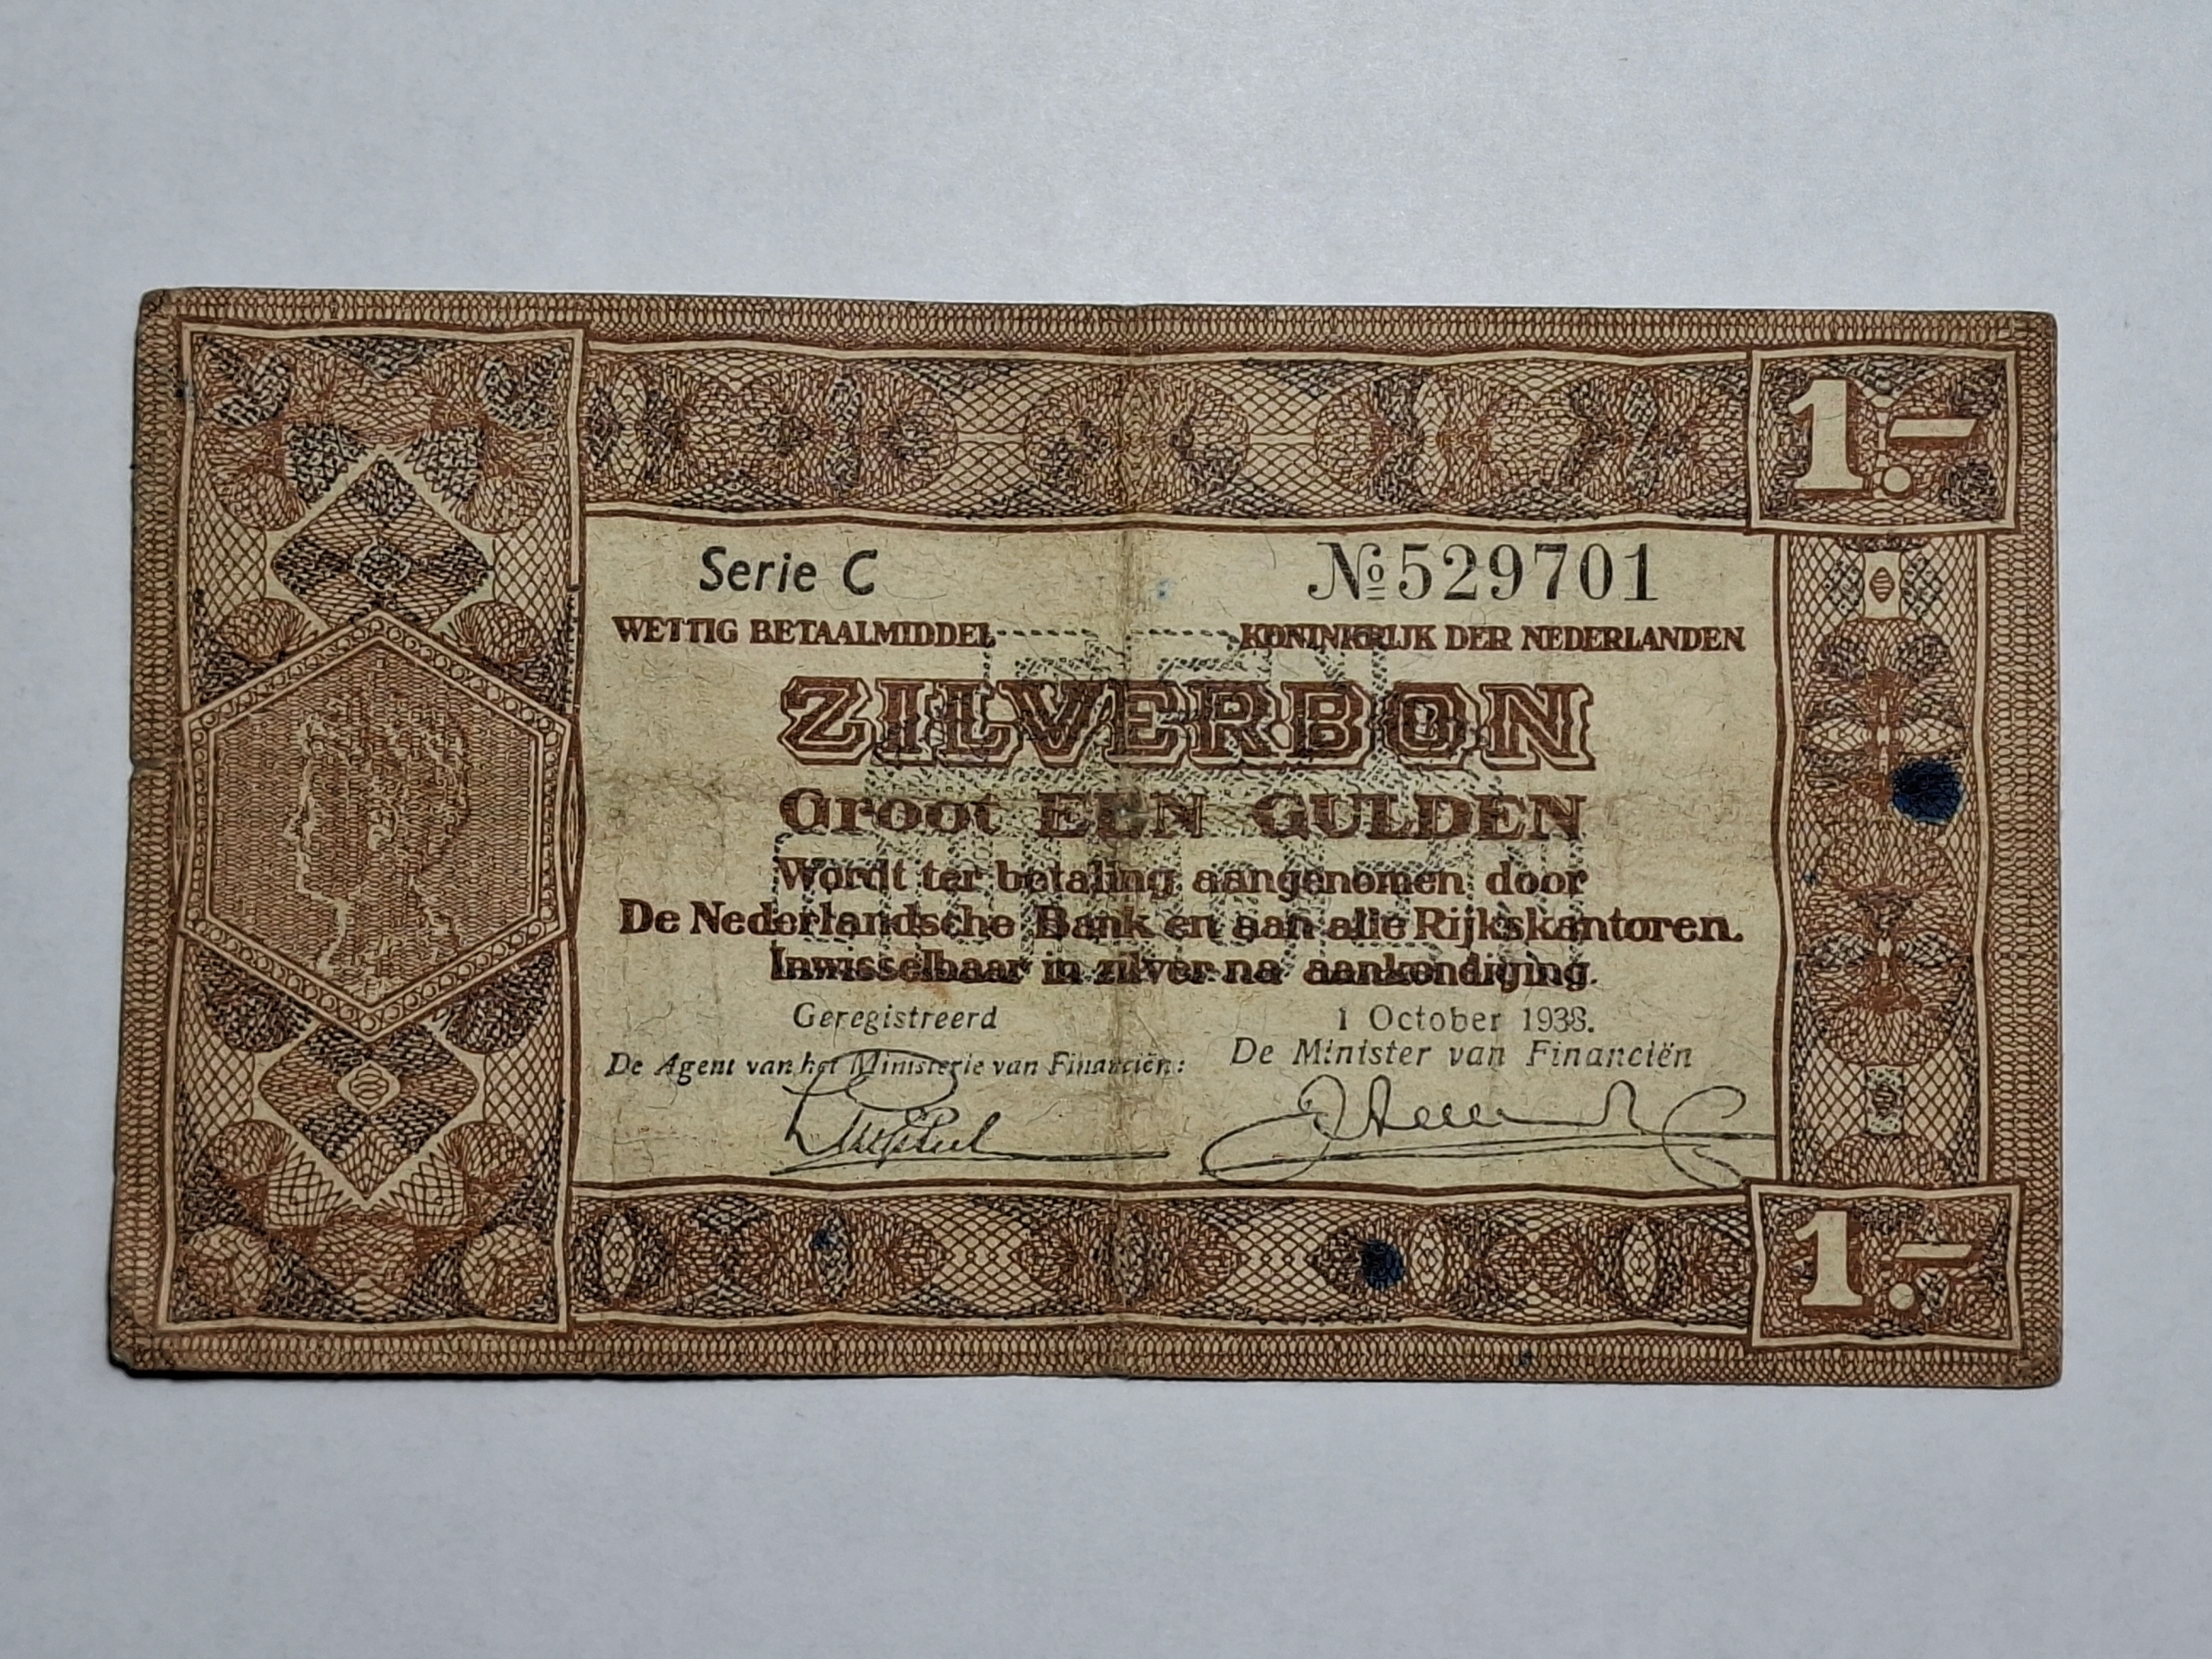 1.-
Serie C № 529701
WETTIG BETAALMIDDEL KONINKRIJK DER NEDERLANDEN
ZILVERBON
Groot EEN GULDEN
Wordt ter betaling aangenomen door
De Nederlandsche Bank en aan alle Rijkskantoren.
Inwisselbaar in zilver na aankondiging.
Geregistreerd 1 October 1938.
De Agent van het Ministerie van Financiën: De Minister van Financiën
1.-